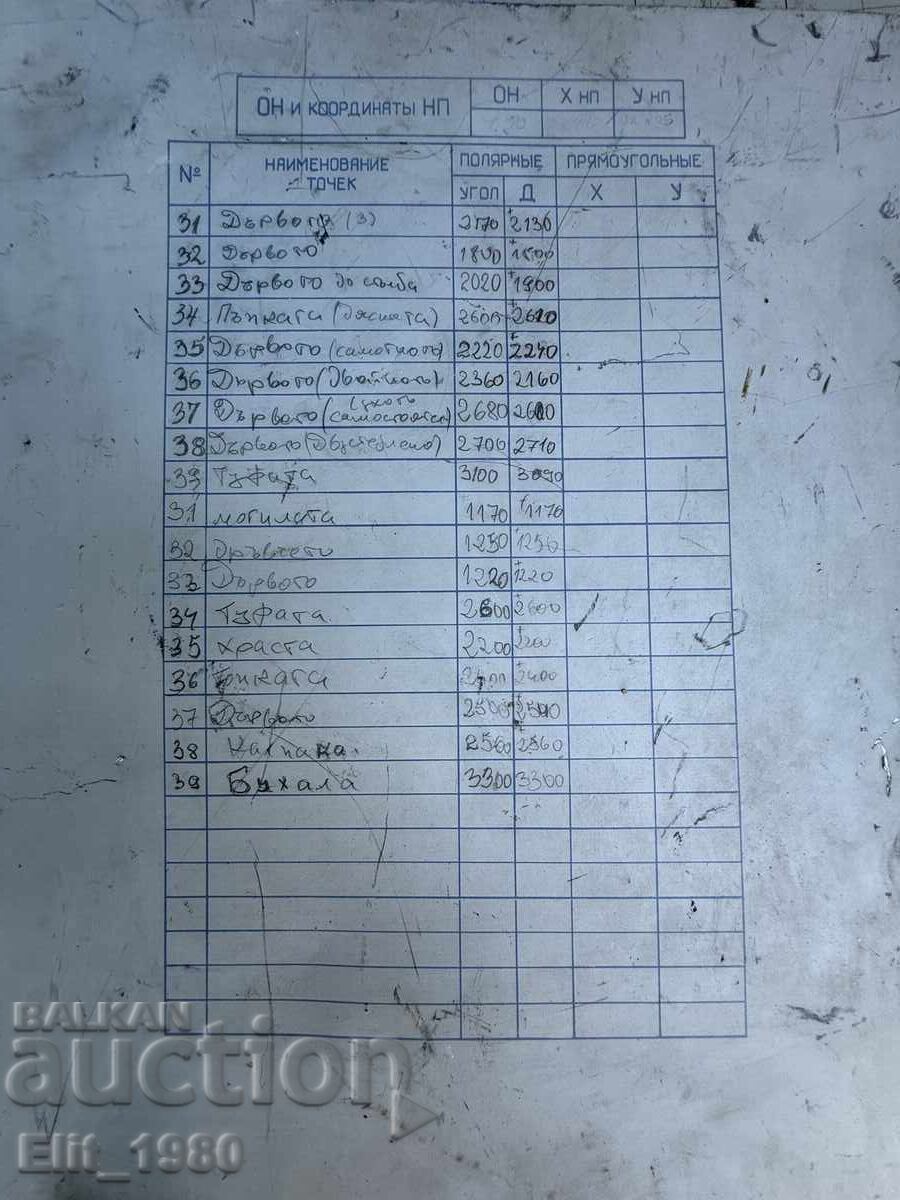 ОН и КООРДИНАТЫ НП ОН Х НП У НП
№ НАИМЕНОВАНИЕ ТОЧЕК ПОЛЯРНЫЕ ПРЯМОУГОЛЬНЫЕ
УГОЛ Д Х У
31 Дървото (3) 2170 +2130
32 Дървото 1800 +1800
33 Дървото до стълба 2020 +1900
34 Пъпката 2600 +2620
35 Дървото (самотното) 2220 +2240
36 Дървото (Двойното) 2360 2160
37 Дървото 2680
38 Дървото 2700 2710
39 Туфата 3100 3090
31 могилата 1170 +1170
32 1250 +1250
33 Дървото 1220 +1220
34 Туфата 2600 +2600
35 храста 2200 +2200
36 2400 +2400
37 Дървото 2500
38 2560 +2560
39 Бухала 3300 3300
BALKAN
auction
Elit_1980